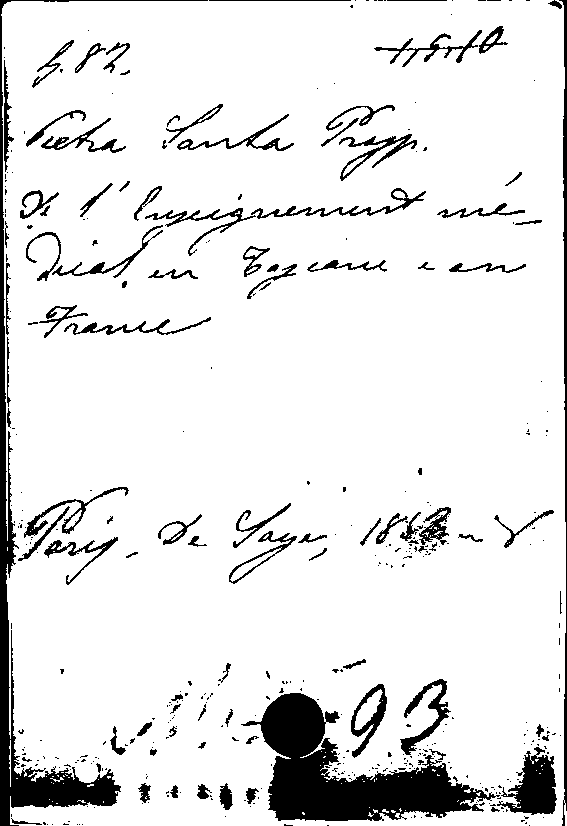 G. 82.
Pietra Santa Prosp.
De l'Enseignement mé-
dical en Toscane e en
France
Paris, De Soye, 18
Misc 93